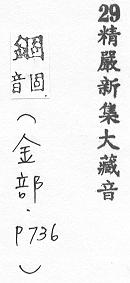 29精嚴新集大藏音
錮音固
（金部．P736）